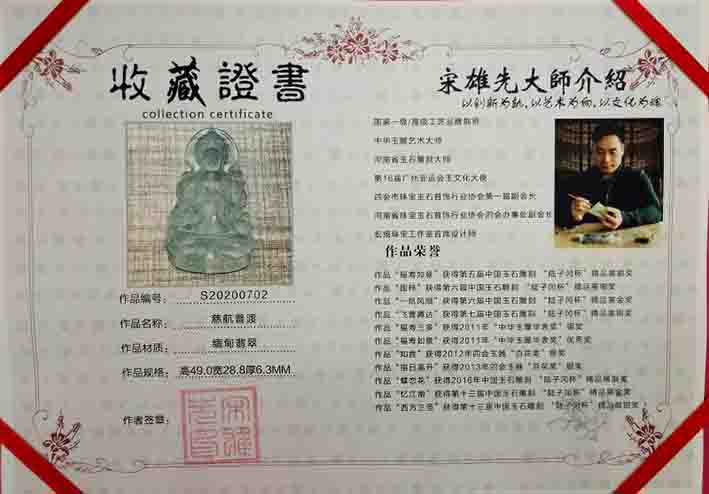 收藏證書
collection certificate
作品编号: S20200702
作品名称: 慈航普渡
作品材质: 缅甸翡翠
作品规格: 高49.0宽28.8厚6.3MM
作者签章:
宋雄先大師介紹
以创新为魂,以艺术为
国家一级/高级工艺品雕刻师
中华玉雕艺术大师
河南省玉石雕刻大师
第16届广州亚运会玉文化大使
四会市珠宝玉石首饰行业协会第一届副会长
河南省珠宝玉石首饰行业协会四会办事处副会长
珠宝工作室首席设计师
作品荣誉
作品“福寿如意”获得第五届中国玉石雕刻“陆子冈杯”精品展银奖
作品 获得第六届中国玉石雕刻“陆子冈杯”精品展银奖
作品“一帆风顺”获得第六届中国玉石雕刻“陆子冈杯”精品展金奖
作品“飞黄腾达”获得第七届中国玉石雕刻“陆子冈杯”精品展银奖
作品“福寿三多”获得2011年“中华玉雕华表奖”银奖
作品“福寿如意”获得2011年“中华玉雕华表奖”优秀奖
作品“知音”获得2012年四会玉雕“百花奖”银奖
作品“指日高升”获得2013年四会玉雕“百花奖”银奖
作品“蝶恋花”获得2016年中国玉石雕刻“陆子冈杯”精品展银奖
作品“忆江南”获得第十三届中国玉石雕刻“陆子冈杯”精品展金奖
作品“西方三圣”获得第十三届中国玉石雕刻“陆子冈杯”精品展银奖